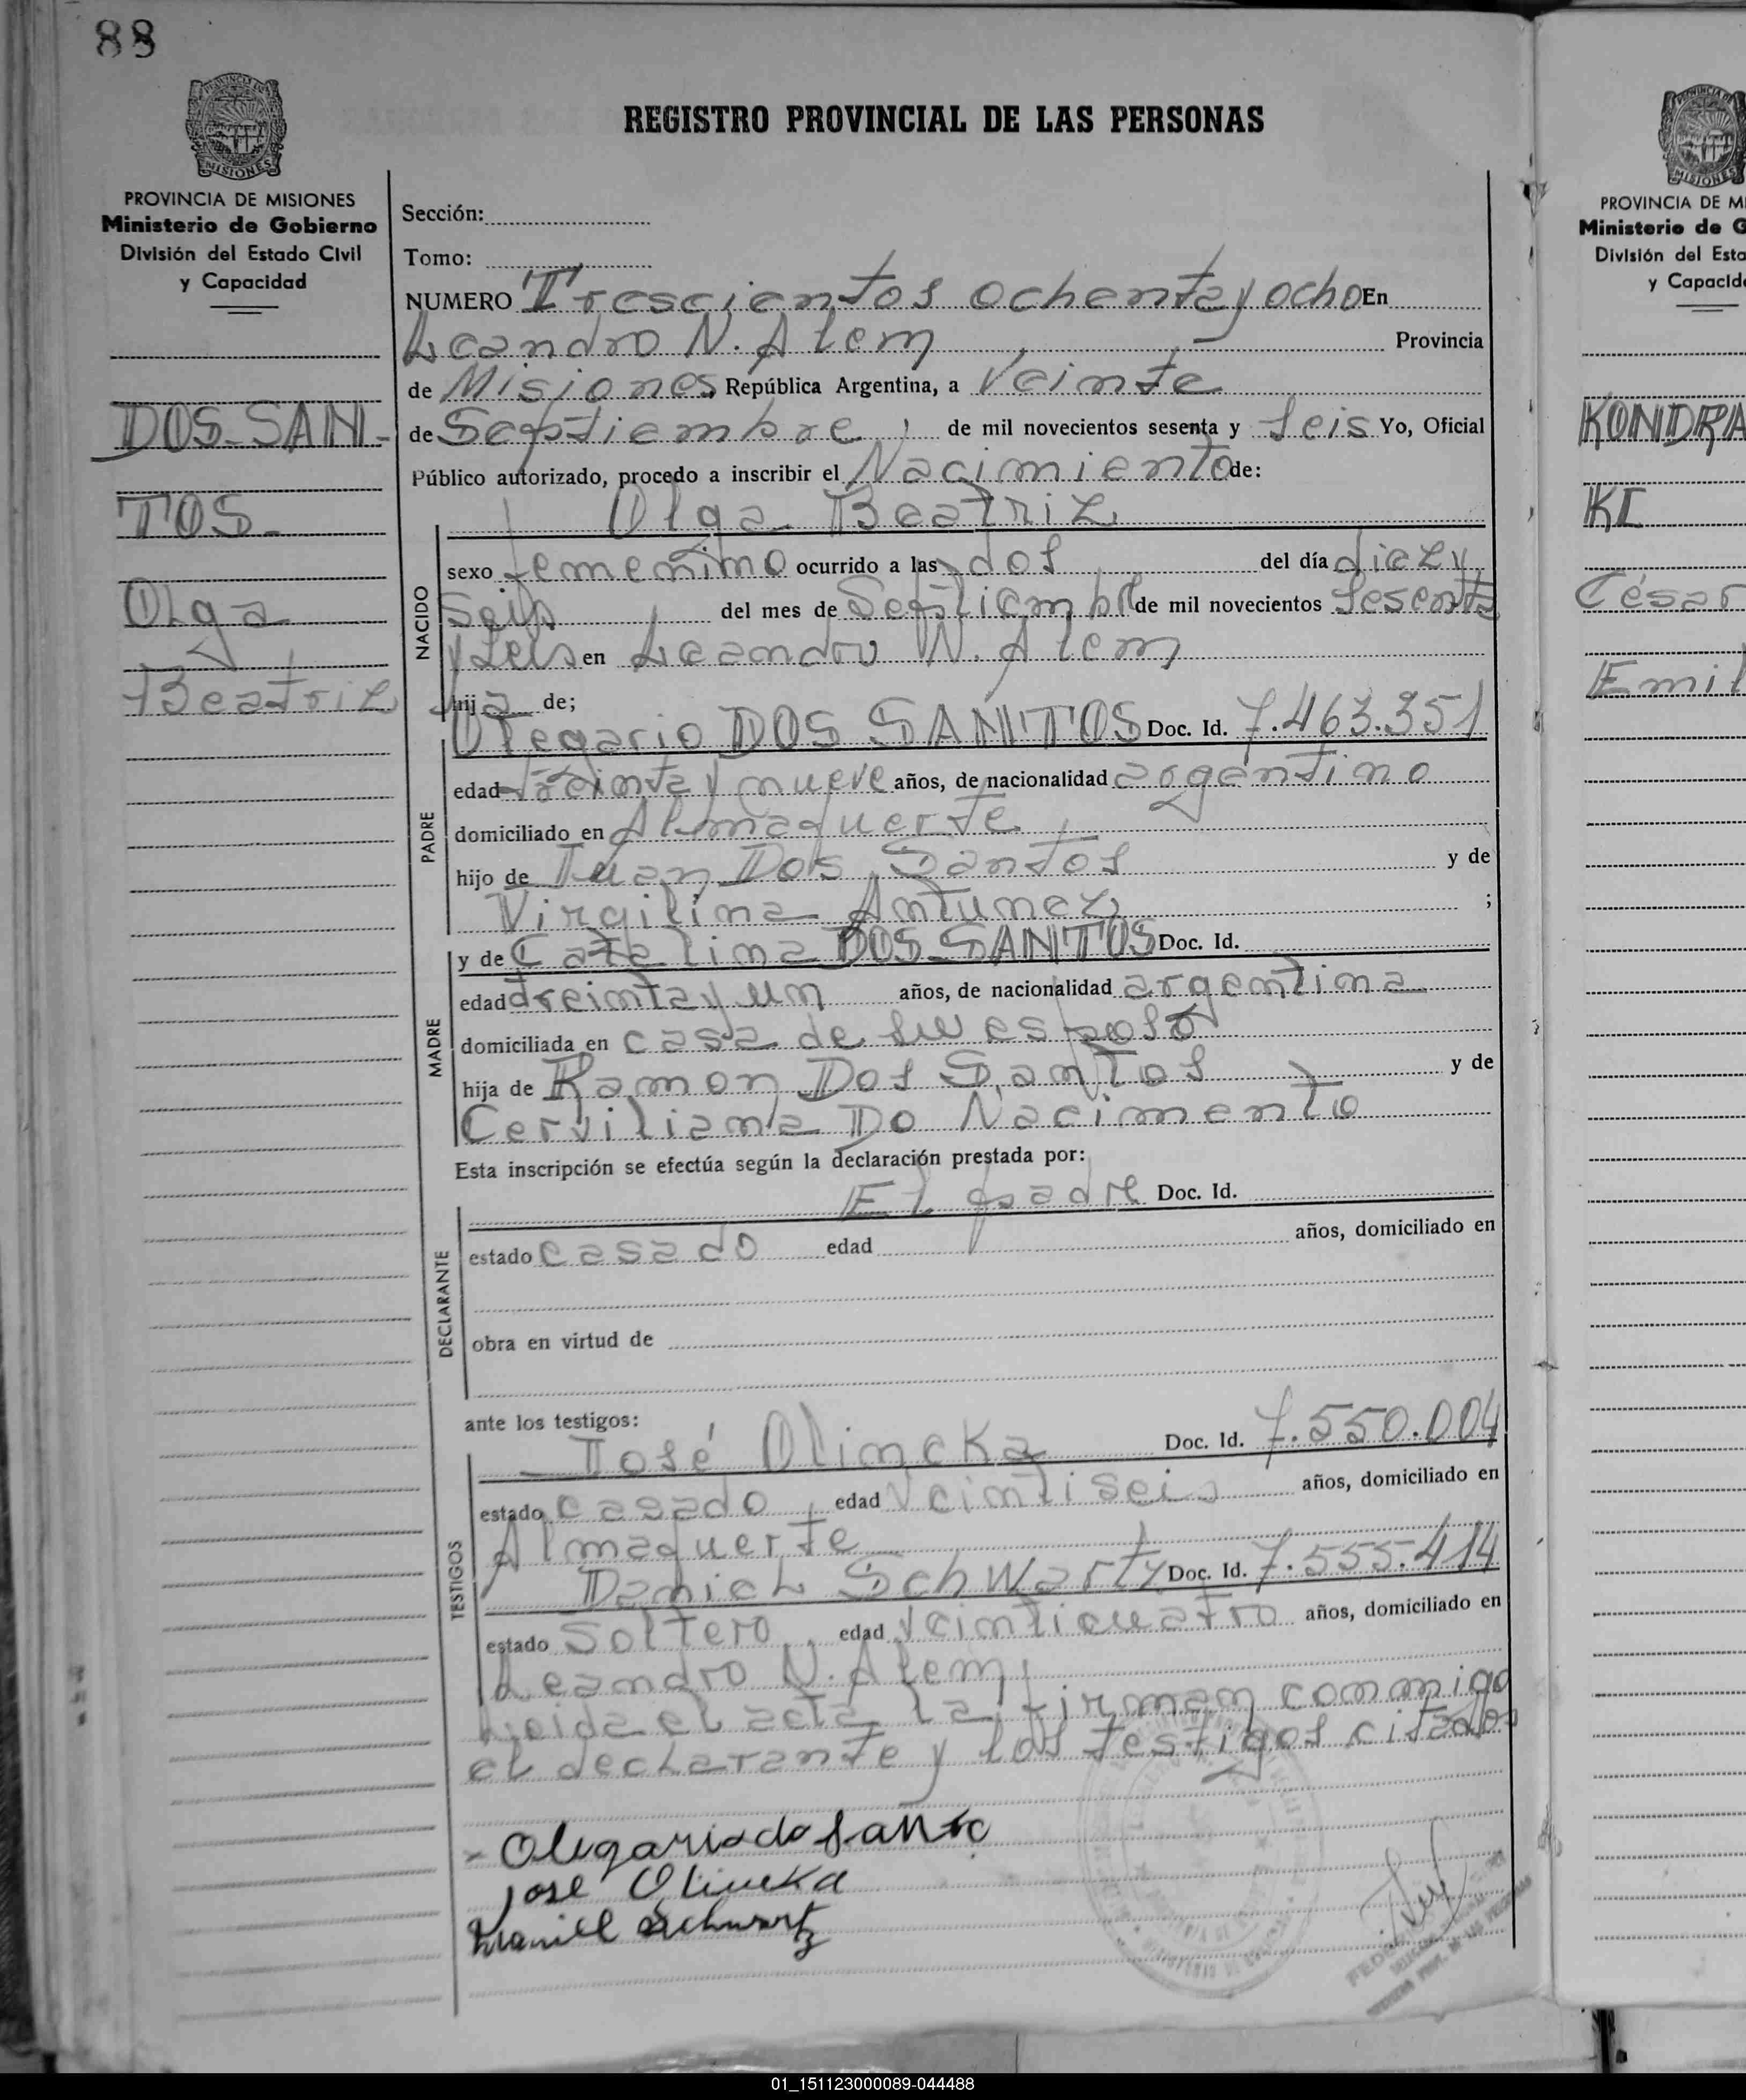 88
PROVINCIA DE MISIONES
Ministerio de Gobierno
División del Estado Civil
y Capacidad
DOS-SAN-
TOS-
Olga
Beatriz
REGISTRO PROVINCIAL DE LAS PERSONAS
Sección:
Tomo:
NUMERO Trescientos ochenta y ocho En
Leandro N. Alem Provincia
de Misiones República Argentina, a Veinte
de Septiembre de mil novecientos sesenta y Seis Yo, Oficial
Público autorizado, procedo a inscribir el Nacimiento de:
Olga Beatriz
NACIDO
sexo femenino ocurrido a las dos del día diez y
seis del mes de Septiembre de mil novecientos Sesenta
y seis en Leandro N. Alem
hija de;
PADRE
Olegario DOS SANTOS Doc. Id. 7.463.351
edad treinta y nueve años, de nacionalidad argentino
domiciliado en Almafuerte
hijo de Juan Dos Santos y de
Virgilina Antunez ;
MADRE
y de Catalina DOS SANTOS Doc. Id.
edad treinta y un años, de nacionalidad argentina
domiciliada en casa de su esposo
hija de Ramon Dos Santos y de
Cerviliana Do Nacimento
Esta inscripción se efectúa según la declaración prestada por:
DECLARANTE
El padre Doc. Id.
estado casado edad años, domiciliado en
obra en virtud de
ante los testigos:
TESTIGOS
José Olincka Doc. Id. 7.550.004
estado casado edad veintiseis años, domiciliado en
Almafuerte
Daniel Schwartz Doc. Id. 7.555.414
estado Soltero edad veinticuatro años, domiciliado en
Leandro N. Alem
Leida el acta la firman conmigo
el declarante y los testigos citados
Olegario do Santo
José Olincka
Daniel Schwartz
PROVINCIA DE M
Ministerio de G
División del Esta
y Capacida
KONDRA
KI
César
Emil
01_151123000089-044488